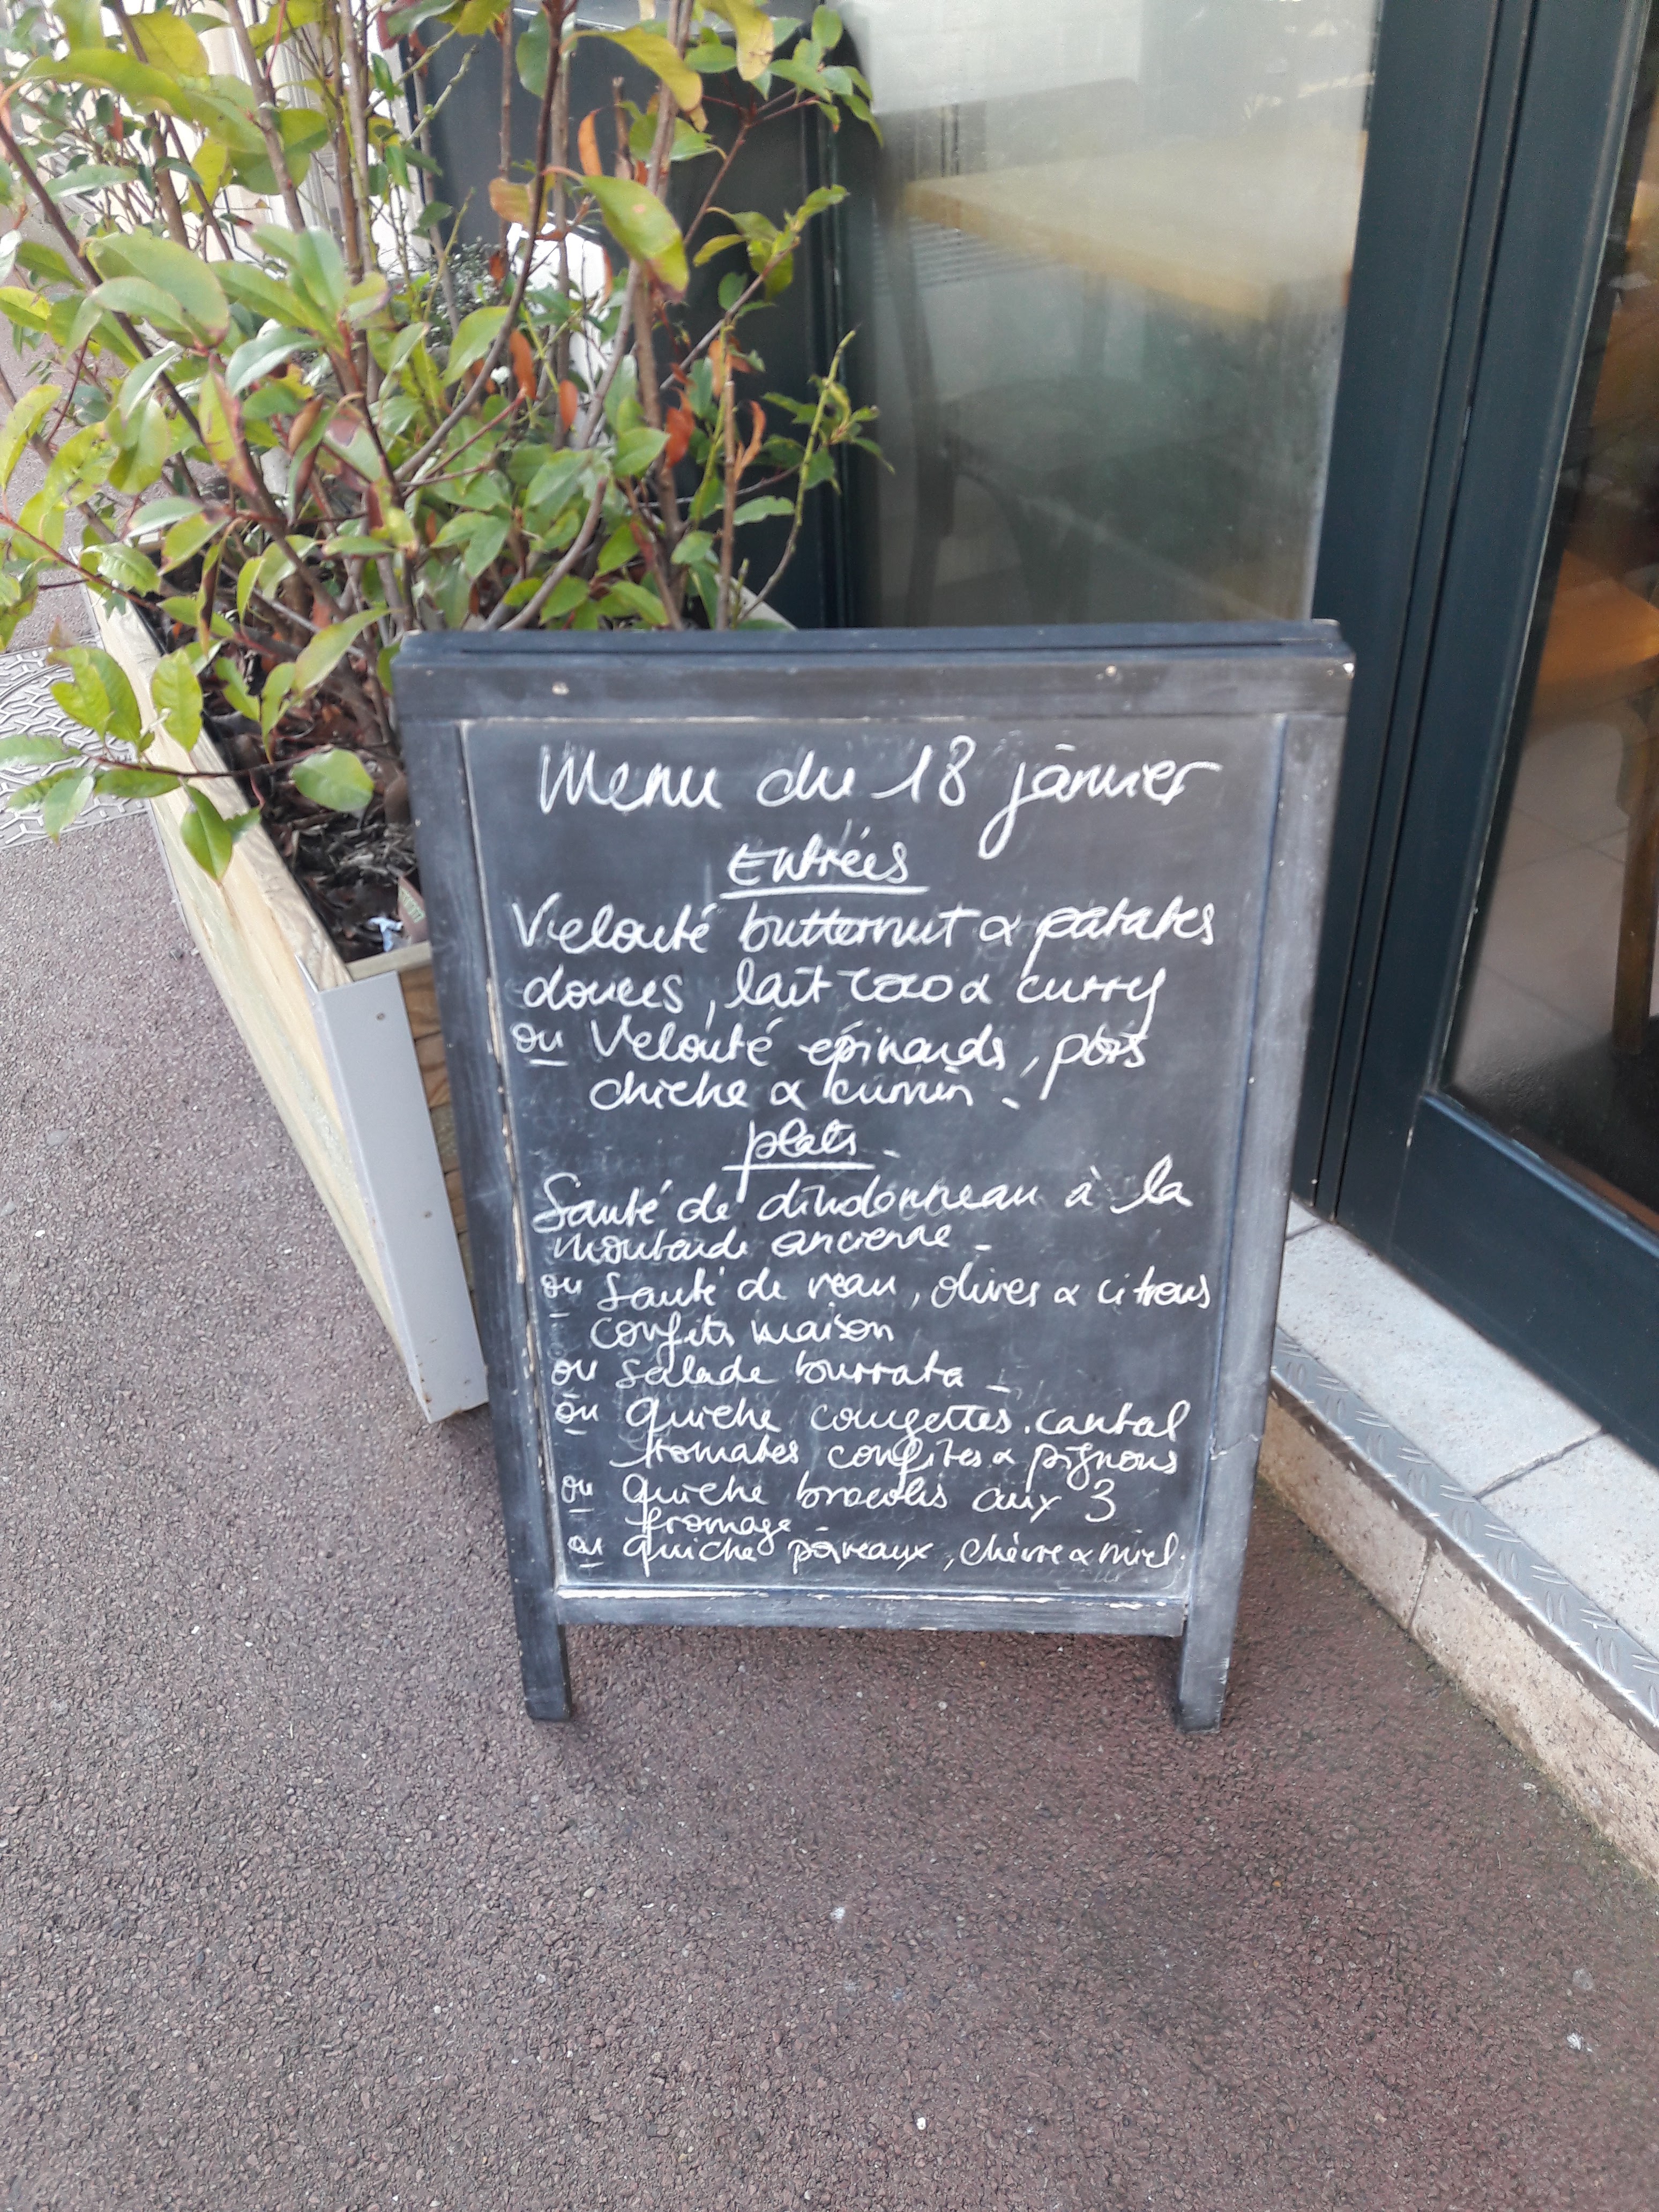 Menu du 18 janvier
Entrées
Velouté butternut & patates
douces, lait coco & curry
ou Velouté épinards, pois
chiche & cumin.
plats.
Sauté de dindonneau à la
moutarde ancienne.
ou Sauté de veau, olives & citrons
confits maison
ou Salade burrata
ou Quiche courgettes. cantal
tomates confites & pignons
ou Quiche brocolis aux 3
fromage.
ou quiche poireaux, chèvre & miel.